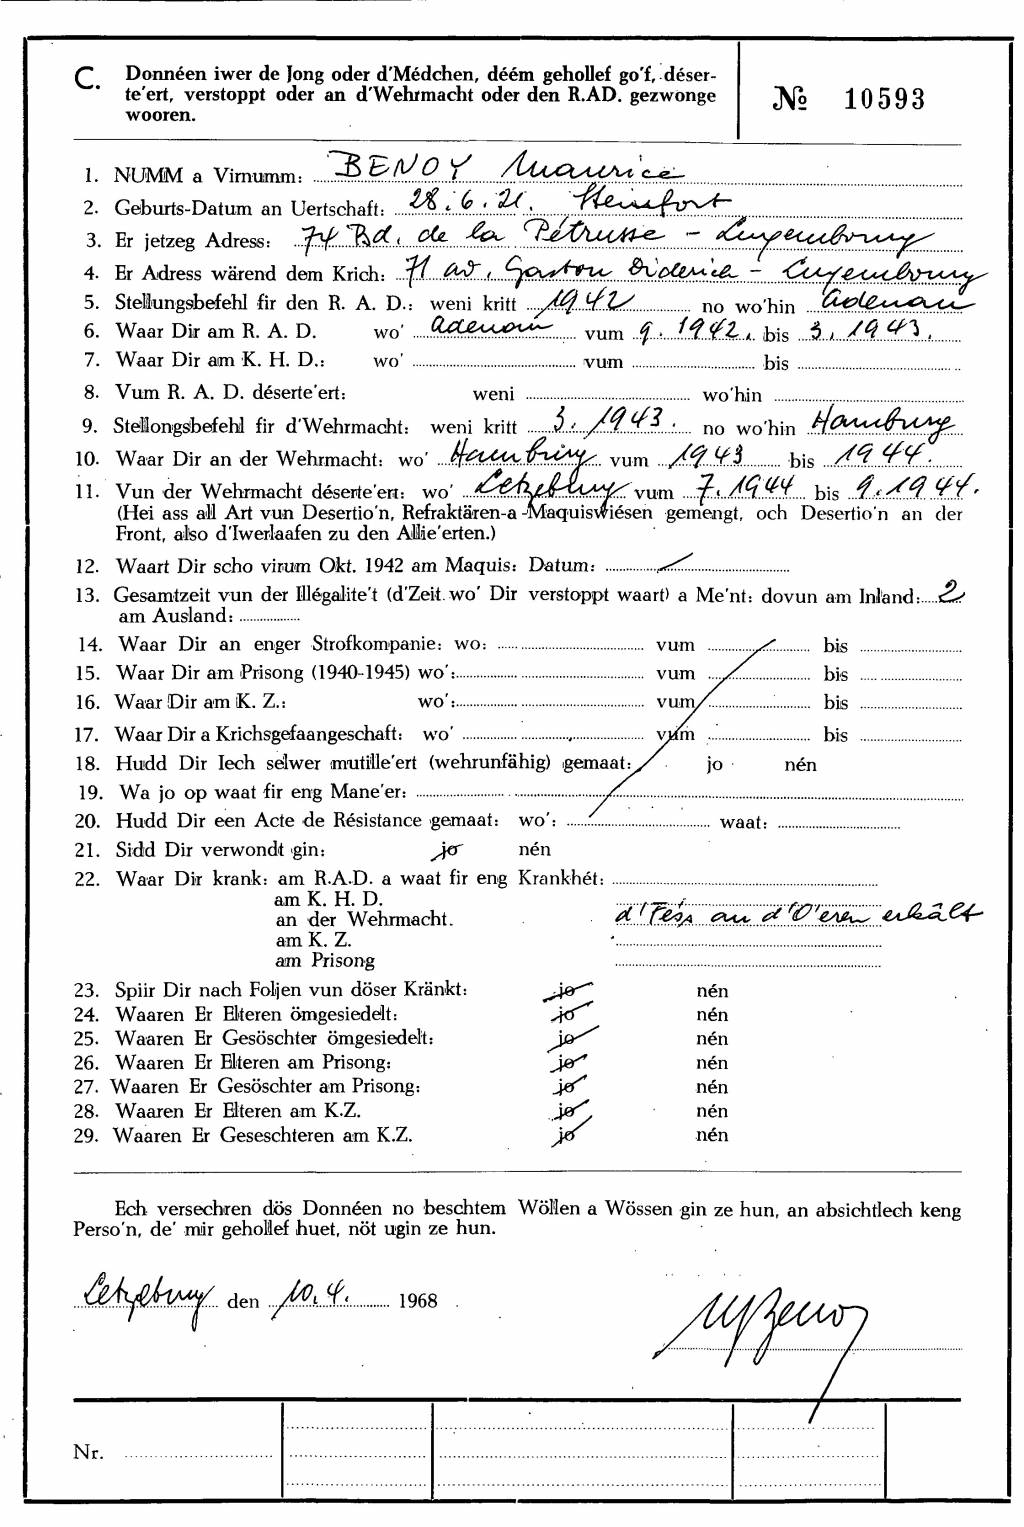 C. Donnéen iwer de Jong oder d'Médchen, déém gehollef go'f, déser-
te'ert, verstoppt oder an d'Wehrmacht oder den R.AD. gezwonge
wooren.
№ 10593
1. NUMM a Virnumm: BENOY Maurice
2. Geburts-Datum an Uertschaft: 28.6.21. Steinfort
3. Er jetzeg Adress: 74 Bd. de la Pétrusse - Luxembourg
4. Er Adress wärend dem Krich: 71 av. Gaston Diderich - Luxembourg
5. Stellungsbefehl fir den R. A. D.: weni kritt 1942 no wo'hin Adenau
6. Waar Dir am R. A. D. wo' Adenau vum 9. 1942. bis 3. 1943.
7. Waar Dir am K. H. D.: wo' vum bis
8. Vum R. A. D. déserte'ert: weni wo'hin
9. Stellongsbefehl fir d'Wehrmacht: weni kritt 3. 1943. no wo'hin Hamburg
10. Waar Dir an der Wehrmacht: wo' Hamburg vum 1943 bis 1944.
11. Vun der Wehrmacht déserte'ert: wo' Letzeburg vum 7. 1944 bis 9. 1944.
(Hei ass all Art vun Desertio'n, Refraktären-a -Maquiswiésen gemengt, och Desertio'n an der
Front, also d'Iwerlaafen zu den Allie'erten.)
12. Waart Dir scho virum Okt. 1942 am Maquis: Datum:
13. Gesamtzeit vun der Illégalite't (d'Zeit wo' Dir verstoppt waart) a Me'nt: dovun am Inland: 2
am Ausland:
14. Waar Dir an enger Strofkompanie: wo: vum bis
15. Waar Dir am Prisong (1940-1945) wo': vum bis
16. Waar Dir am K. Z.: wo': vum bis
17. Waar Dir a Krichsgefaangeschaft: wo' vum bis
18. Hudd Dir Iech selwer mutille'ert (wehrunfähig) gemaat: jo nén
19. Wa jo op waat fir eng Mane'er:
20. Hudd Dir een Acte de Résistance gemaat: wo': waat:
21. Sidd Dir verwondt gin: jo nén
22. Waar Dir krank: am R.A.D. a waat fir eng Krankhét:
am K. H. D.
an der Wehrmacht. d'Féiss an d'O'eren erkâlt
am K. Z.
am Prisong
23. Spiir Dir nach Foljen vun döser Kränkt: jo nén
24. Waaren Er Elteren ömgesiedelt: jo nén
25. Waaren Er Gesöschter ömgesiedelt: jo nén
26. Waaren Er Elteren am Prisong: jo nén
27. Waaren Er Gesöschter am Prisong: jo nén
28. Waaren Er Elteren am K.Z. jo nén
29. Waaren Er Geseschteren am K.Z. jo nén
Ech versechren dös Donnéen no beschtem Wöllen a Wössen gin ze hun, an absichtlech keng
Perso'n, de' mir gehollef huet, nöt ugin ze hun.
Letzeburg den 10.4. 1968
MBenoy
Nr.